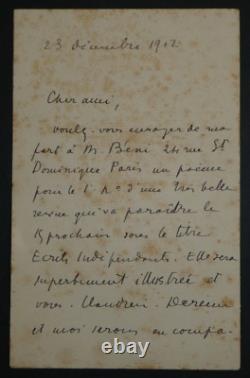 23 décembre 1912
Cher ami,
voulez-vous envoyer de ma
part à M. Beni 24 rue St
Dominique Paris un poème
pour le 1er No d'une très belle
revue qui va paraître le
15 prochain sous le titre
Ecrits Indépendants. Elle sera
superbement illustrée et
vous. Derème
et moi serons en compa-